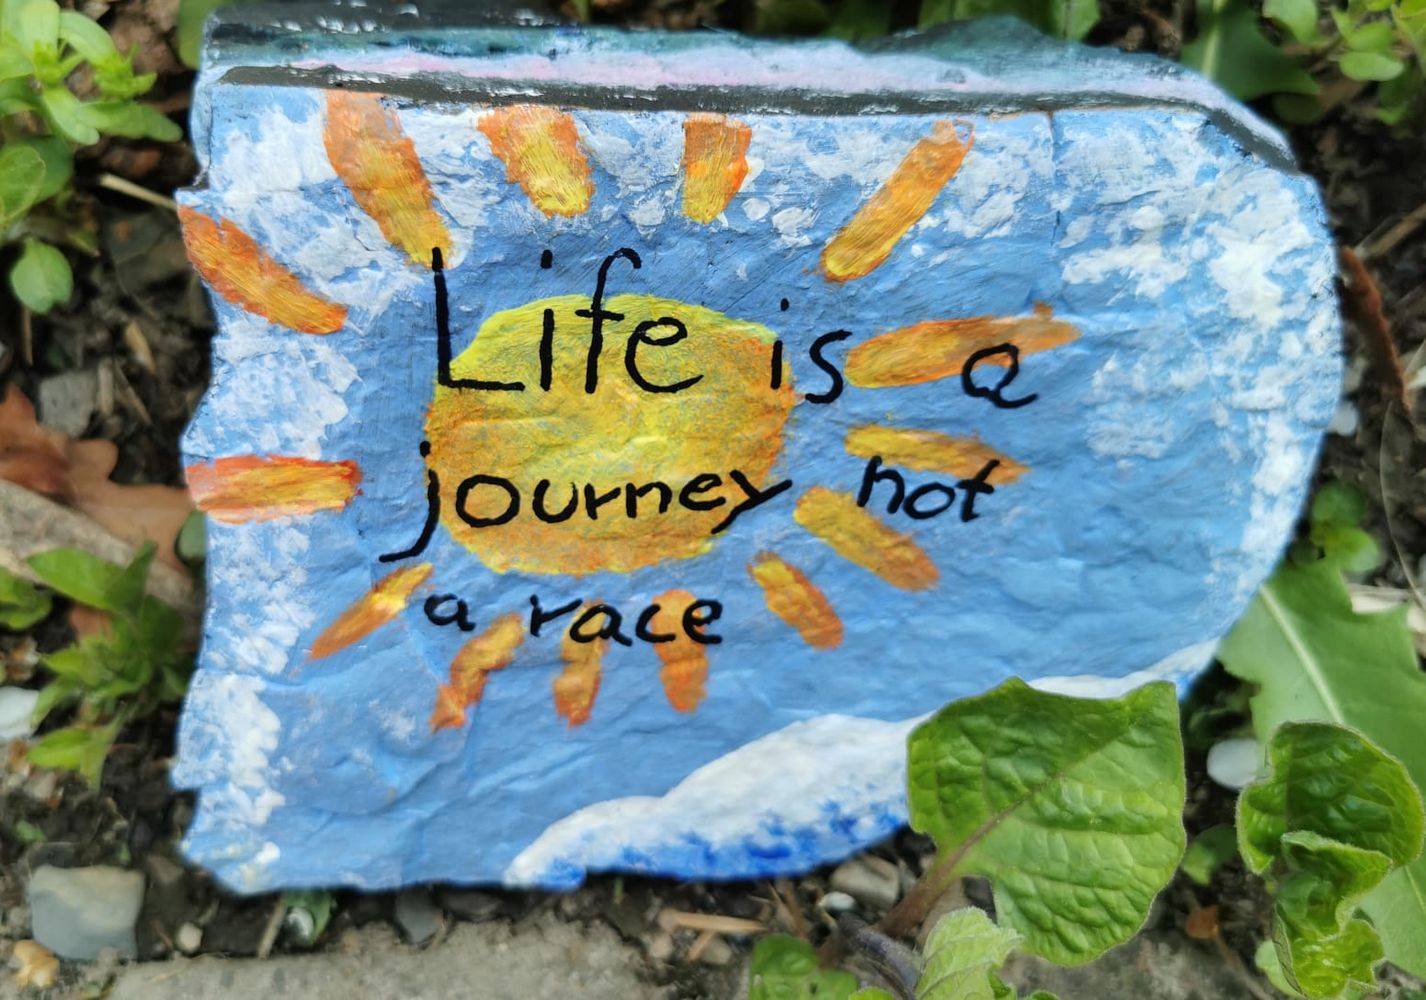 Life is a
journey not
a race